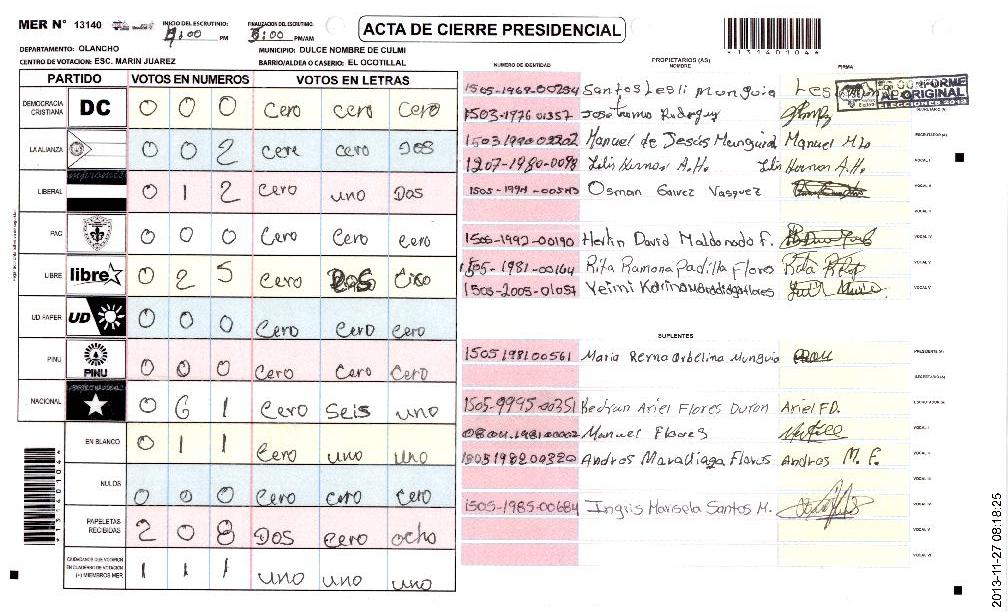 MER N° 13140
INICIO DEL ESCRUTINIO: :00 PM
FINALIZACION DEL ESCRUTINIO: :00 PM/AM
ACTA DE CIERRE PRESIDENCIAL
*13140104*
DEPARTAMENTO: OLANCHO
MUNICIPIO: DULCE NOMBRE DE CULMI
CENTRO DE VOTACION: ESC. MARIN JUAREZ
BARRIO/ALDEA O CASERIO: EL OCOTILLAL
PARTIDO VOTOS EN NUMEROS VOTOS EN LETRAS
DEMOCRACIA CRISTIANA DC 0 0 0 Cero cero Cero
LA ALIANZA 0 0 2 cere cero Dos
LIBERAL 0 1 2 cero uno Dos
PAC 0 0 0 Cero Cero cero
LIBRE libre 0 2 5 cero Dos
UD FAPER UD 0 0 0 Cero Cero cero
PINU PINU 0 0 0 Cero Cero Cero
NACIONAL 0 6 1 Cero Seis uno
EN BLANCO 0 1 1 Cero uno uno
NULOS 0 0 0 Cero cero cero
PAPELETAS RECIBIDAS 2 0 8 Dos cero ocho
CIUDADANOS QUE VOTARON EN CUADERNO DE VOTACION (+) MIEMBROS MER 1 1 1 uno uno uno
*13140104*
PROPIETARIOS (AS)
NUMERO DE IDENTIDAD NOMBRE FIRMA
ES CONFORME AL ORIGINAL
ELECCIONES 2013
1505-1969-00254 Santos Lesli Munguia Les
1503-1976 01357 Jose
1503-1990 02202 Manuel de Jesús Munguia Manuel
1207-1980-0098 Hernan A.H. Hernan A.H.
1505-1994-00543 Osman Gavez Vasquez
1505-1992-00190 Herlin David Maldonado F.
1505-1981-00164 Rita Ramona Padilla Flores Rita
1505-2005-01057 Yeimi Karina
SUPLENTES
1505198100561 Maria Reina Orbelina Munguia
1505-9995-00351 Beduan Ariel Flores Duron Ariel F.D.
0801.198100002 Manuel Flores
1505198200320 Andres Maradiaga Flores Andres M. F.
1505-1985-00684 Ingris Marisela Santos M.
2013-11-27 08:18:25